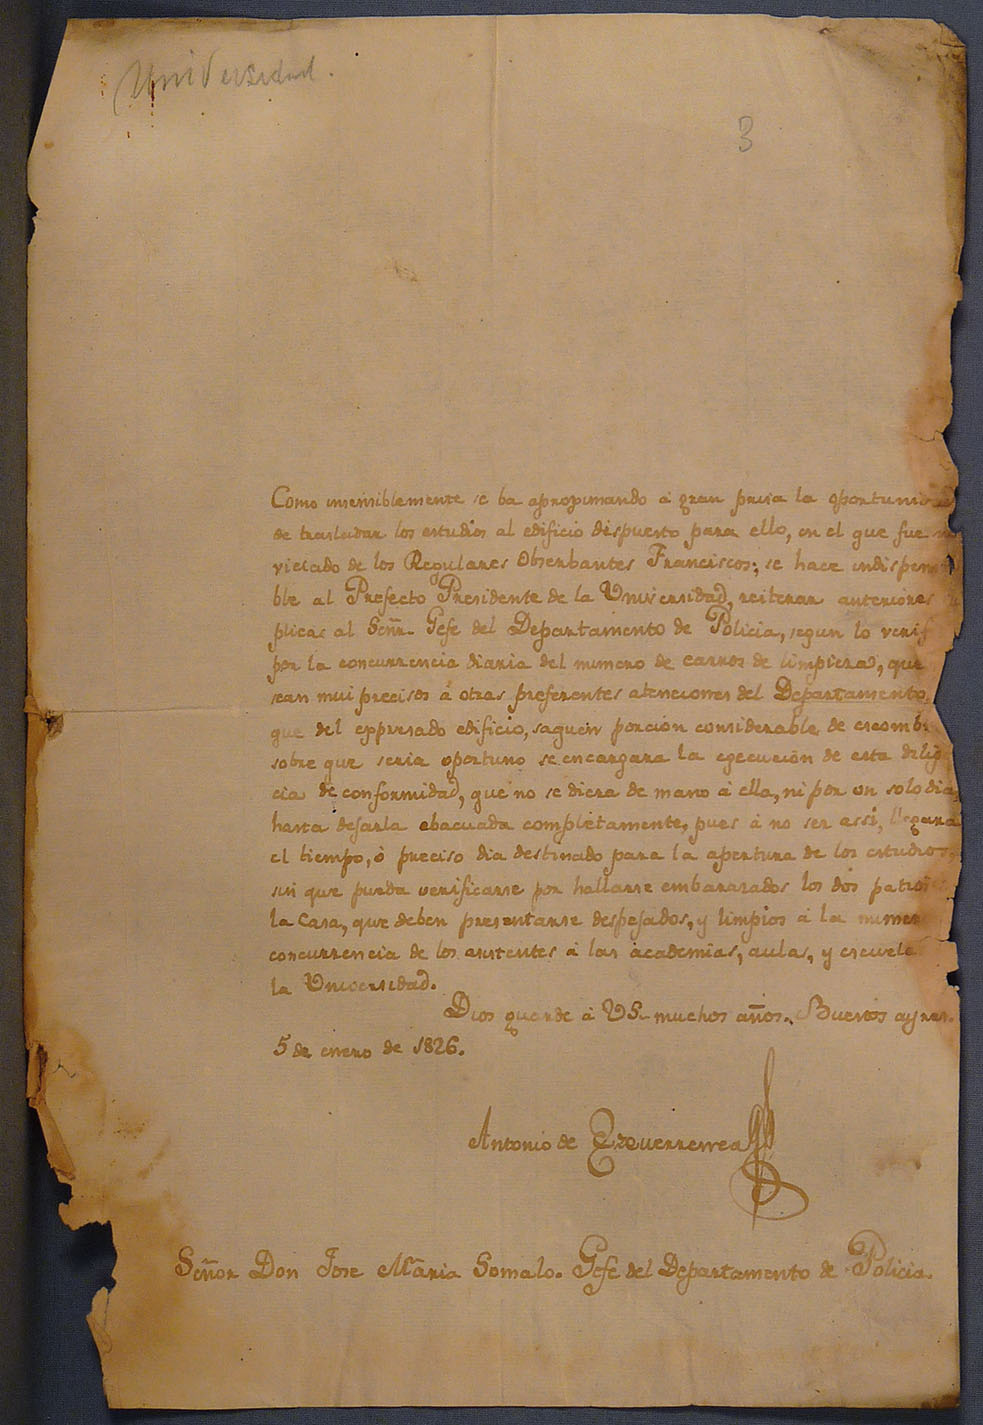 Universidad.
3
Como insensiblemente se ba apropimando á gran prisa la oportunid
de trasladar los estudios al edificio dispuesto para ello, en el que fue
vielado de los Regulares Obserbantes Franciscos; se hace indispen
ble al Prefecto Presidente de la Universidad, reiterar anteriores
plicas al Señr. Gefe del Departamento de Policia, segun lo verif
por la concurrencia diaria del numero de carros de limpieza, que
sean mui precisos á otras preferentes atenciones del Departamento,
que del expresado edificio, saquen porción considerable de escomb
sobre que seria oportuno se encargara la egecución de esta dilig
cia de conformidad, que no se diera de mano á ella, ni por un solo dia,
hasta dejarla ebacuada completamente, pues á no ser assi, llegará
el tiempo, ó preciso dia destinado para la apertura de los estudios,
sin que pueda verificarse por hallarse embarazados los dos patios
la Casa, que deben presentarse despejados, y limpios á la numer
concurrencia de los asistentes á las academias, aulas, y escuela
la Universidad.
Dios guarde á VS. muchos años. Buenos ayres.
5 de enero de 1826.
Antonio de Ezquerrenea
Señor Don Jose Maria Somalo. Gefe del Departamento de Policia.